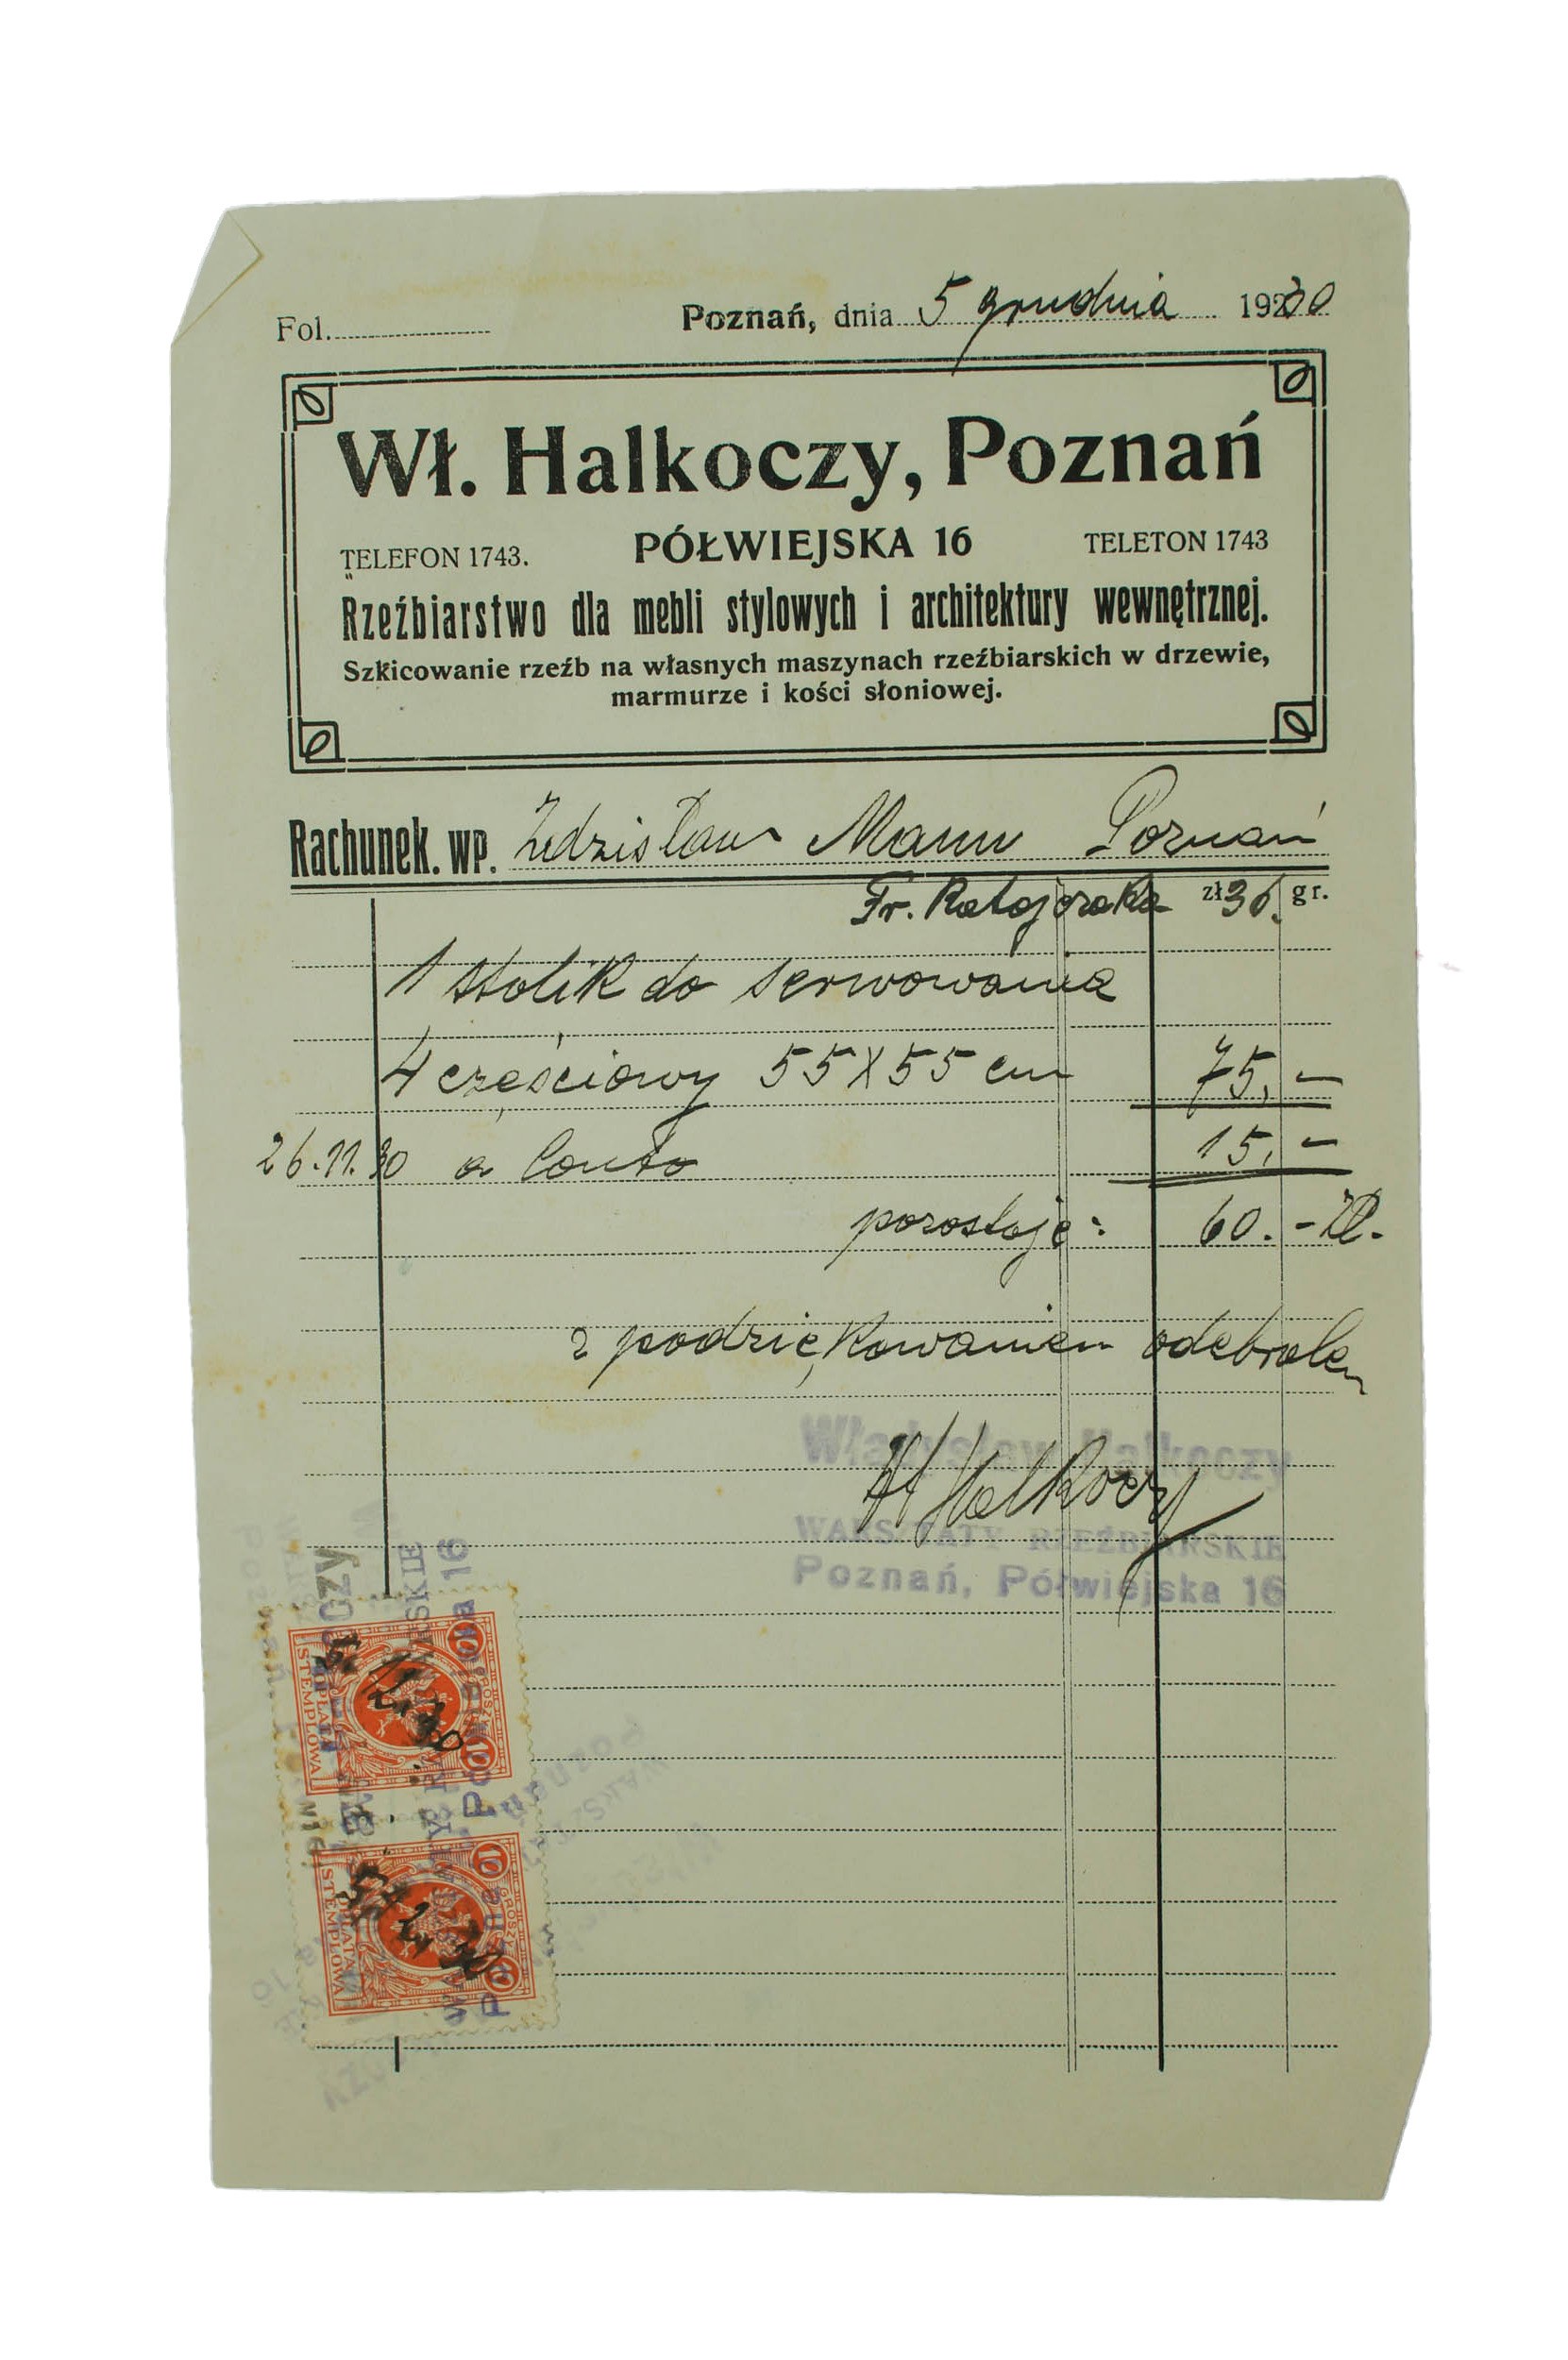 Fol. Poznań, dnia 5 grudnia 1930
Wł. Halkoczy, Poznań
TELEFON 1743. PÓŁWIEJSKA 16 TELETON 1743
Rzeźbiarstwo dla mebli stylowych i architektury wewnętrznej.
Szkicowanie rzeźb na własnych maszynach rzeźbiarskich w drzewie,
marmurze i kości słoniowej.
Rachunek. wp. Zdzisław Mann Poznań
Fr. Ratajczaka 36. zł gr.
1 stolik do serwowania
4 częściowy 55X55 cm 75,—
26.11.30 a Conto 15,—
pozostaje: 60.— zł.
z podziękowaniem odebrałem
Władysław Halkoczy
W Halkoczy
WARSZTATY RZEŹBIARSKIE
Poznań, Półwiejska 16
10 GROSZY 10
OPŁATA STEMPLOWA
5. 12. 30
10 GROSZY 10
OPŁATA STEMPLOWA